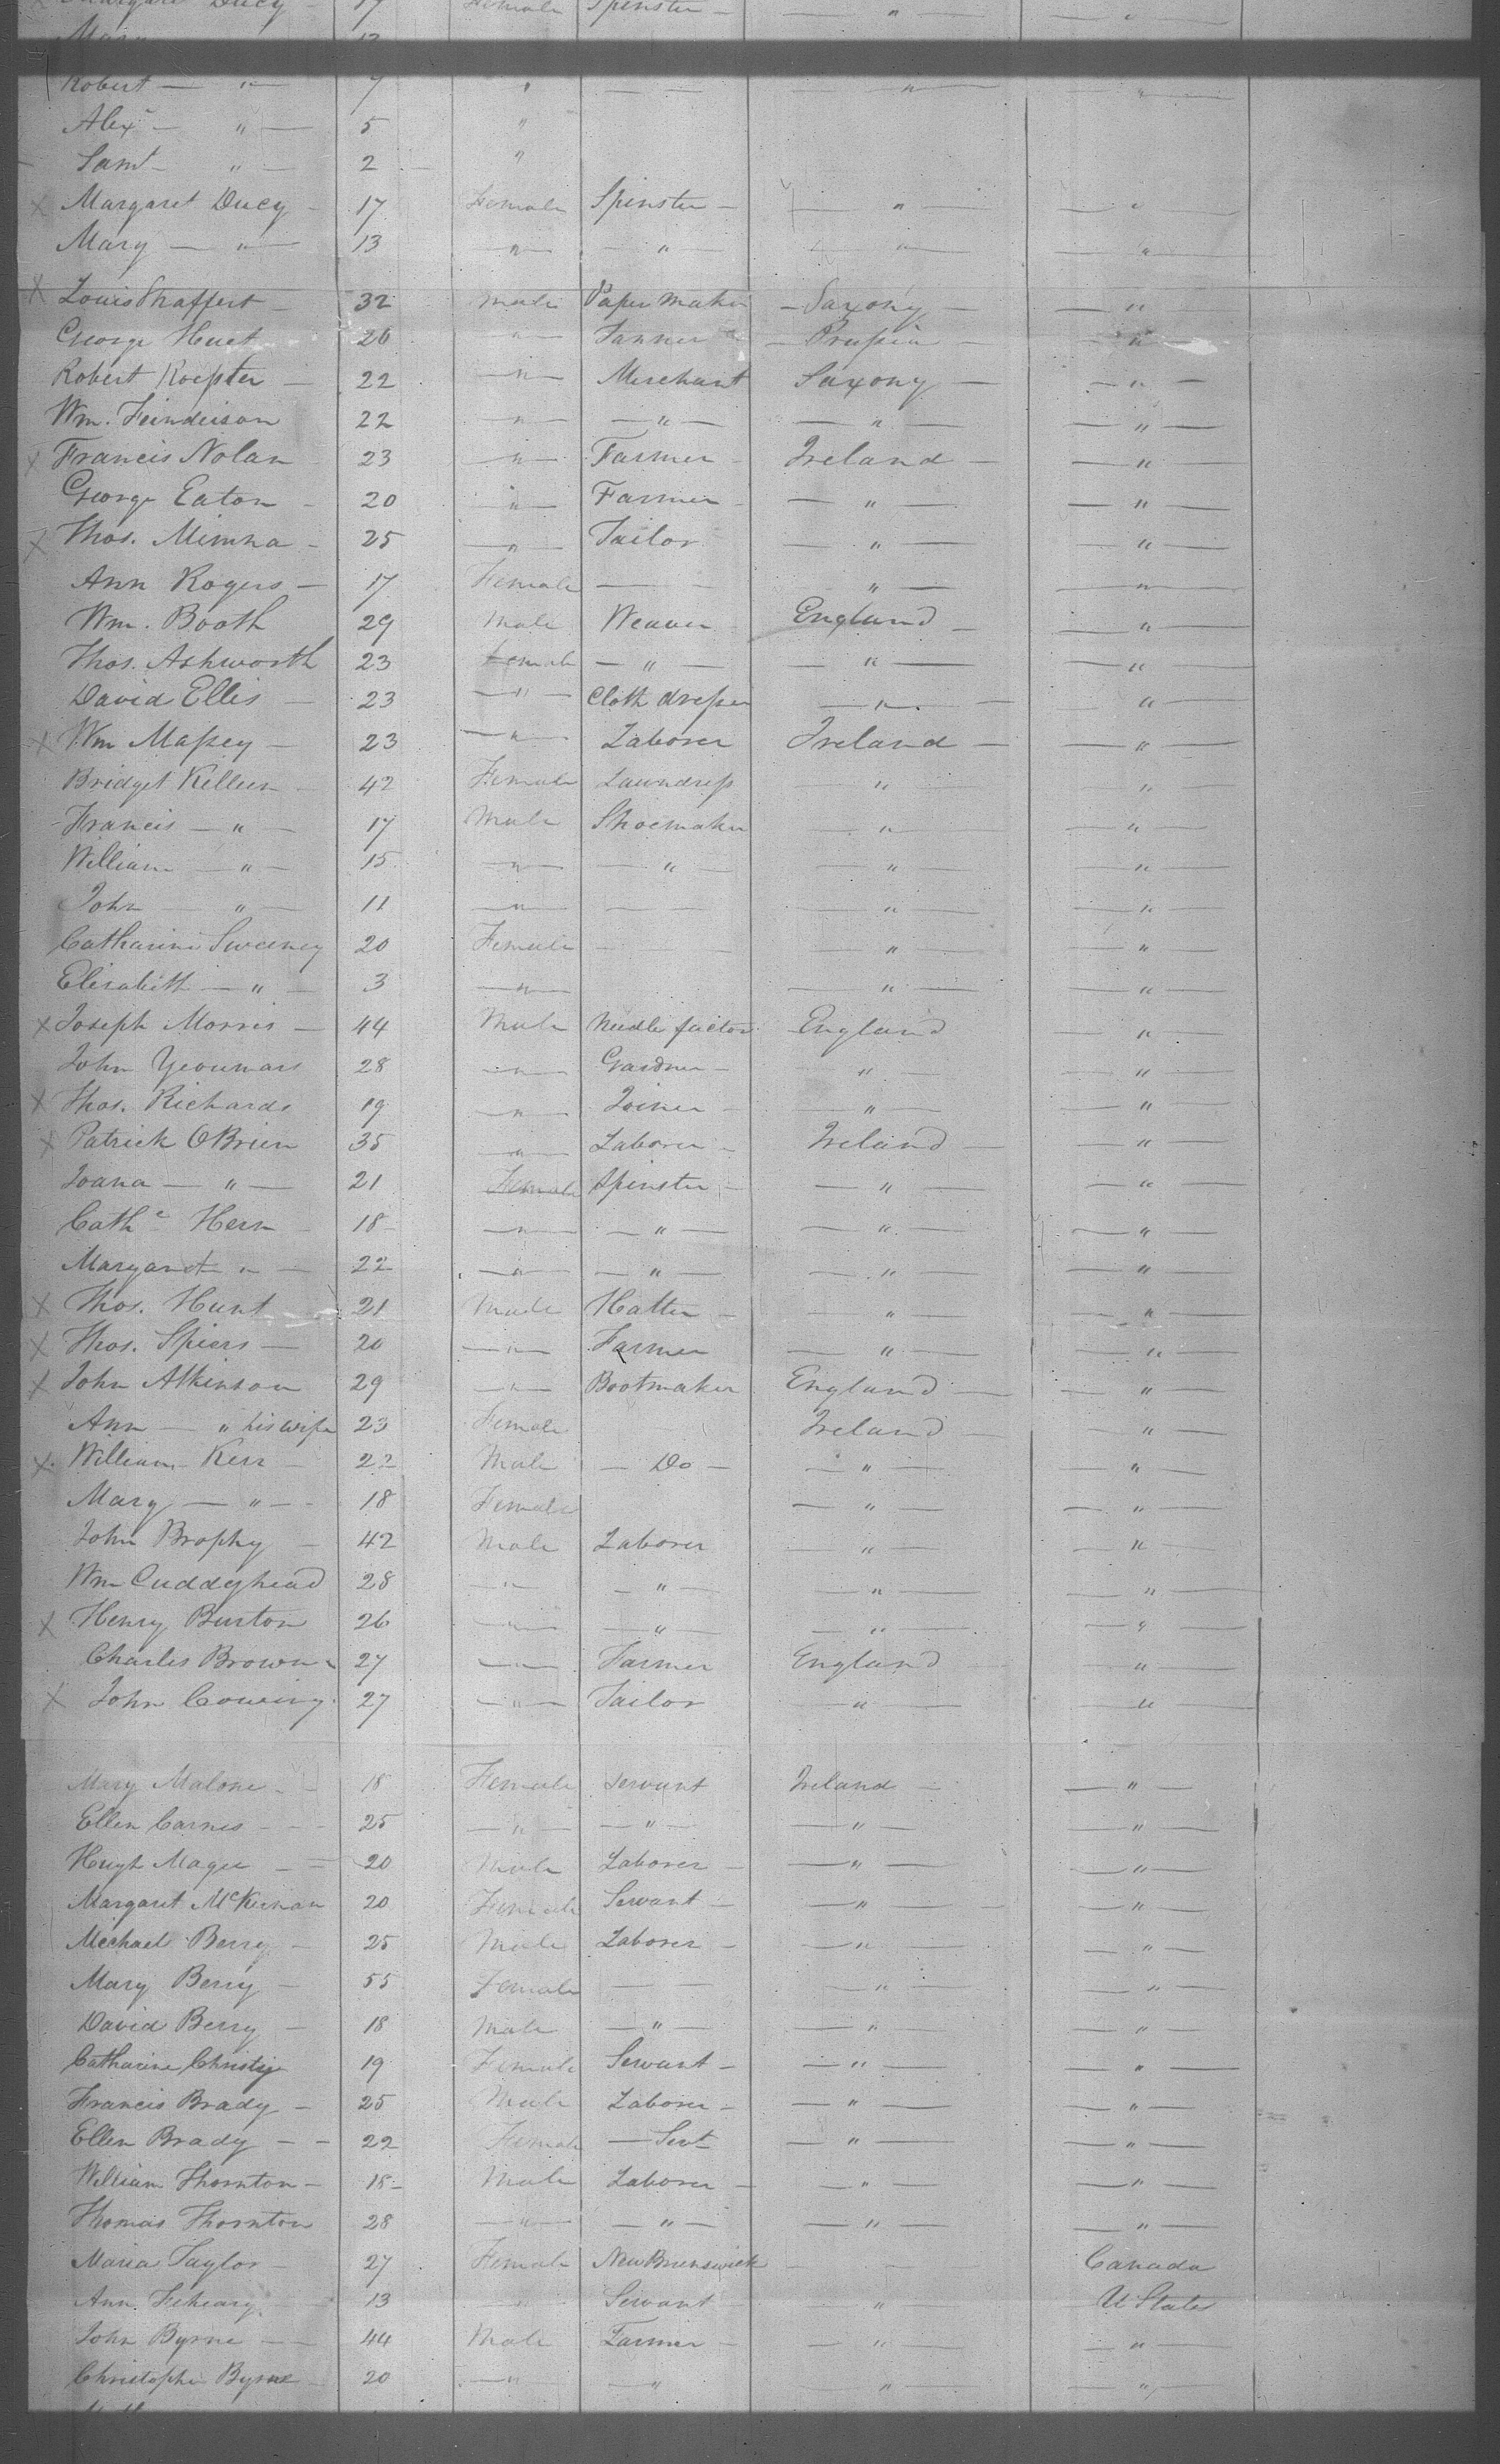 Margaret Ducy - 17 Female Spinster - " "
Mary 13
Robert - " - 7 " - - " "
Alexr - " - 5 "
Saml - " - 2 - "
x Margaret Ducy - 17 Female Spinster - " "
Mary - " - 13 " " " "
x Louis Shaffert - 32 Male Paper Maker - Saxony - "
George Huet 26 " Tanner - Prussia - "
Robert Koepter - 22 " Merchant Saxony - "
Wm. Feindeison 22 " " " "
x Francis Nolan 23 " Farmer - Ireland - "
George Eaton - 20 " Farmer - " "
x Thos. Mimna - 25 " Tailor " "
Ann Rogers - 17 Female - - " "
Wm. Booth 29 Male Weaver England - "
Thos. Ashworth 23 Female " " "
David Ellis - 23 " Cloth dresser " - "
x Wm Massey - 23 " Laborer Ireland - "
Bridget Killeen - 42 Female Laundress " "
Francis - " - 17 Male Shoemaker " "
William - " - 15 " " " "
John - " - 11 " - - " "
Catharine Sweeney 20 Female - - " "
Elisabeth - " - 3 " " "
x Joseph Morris - 44 Male Needle factor England "
John Yeoumans 28 " Gardner - " "
x Thos. Richards 19 " Joiner - " "
x Patrick OBrien 35 " Laborer - Ireland - "
Joana - " - 21 Female Spinster - " "
Cathe Hern - 18 - " " " "
Margaret " - 22 " " " "
x Thos. Hunt - 21 Male Hatter - " "
x Thos. Spiers - 20 " Farmer " "
x John Atkinson 29 " Bootmaker England - "
Ann - " his wife 23 Female Ireland - "
x William Kerr - 22 Male - Do - " "
Mary - " - 18 Female " "
John Brophy - 42 Male Laborer " "
Wm Cuddyhead 28 " " " "
x Henry Burton 26 " " " "
Charles Brown - 27 " Farmer England "
x John Cowing 27 " Tailor " "
Mary Malone - - 18 Female Servant Ireland - "
Ellen Carnes - - - 25 " " " "
Hugh Magee - - 20 Male Laborer - " "
Margaret McKiernan 20 Female Servant - " - "
Michael Berry - 25 Male Laborer - " "
Mary Berry - 55 Female - - " "
David Berry - 18 Male " " "
Catharine Christy 19 Female Servant - " "
Francis Brady - 25 Male Laborer - " "
Ellen Brady - - 22 Female - Servt " "
William Thornton - 18 - Male Laborer - " "
Thomas Thornton 28 " " " "
Maria Taylor - 27 Female New Brunswick - - Canada
Ann 13 " Servant - " U States
John Byrne - 44 Male Farmer - " "
Christopher Byrne 20 " " " "